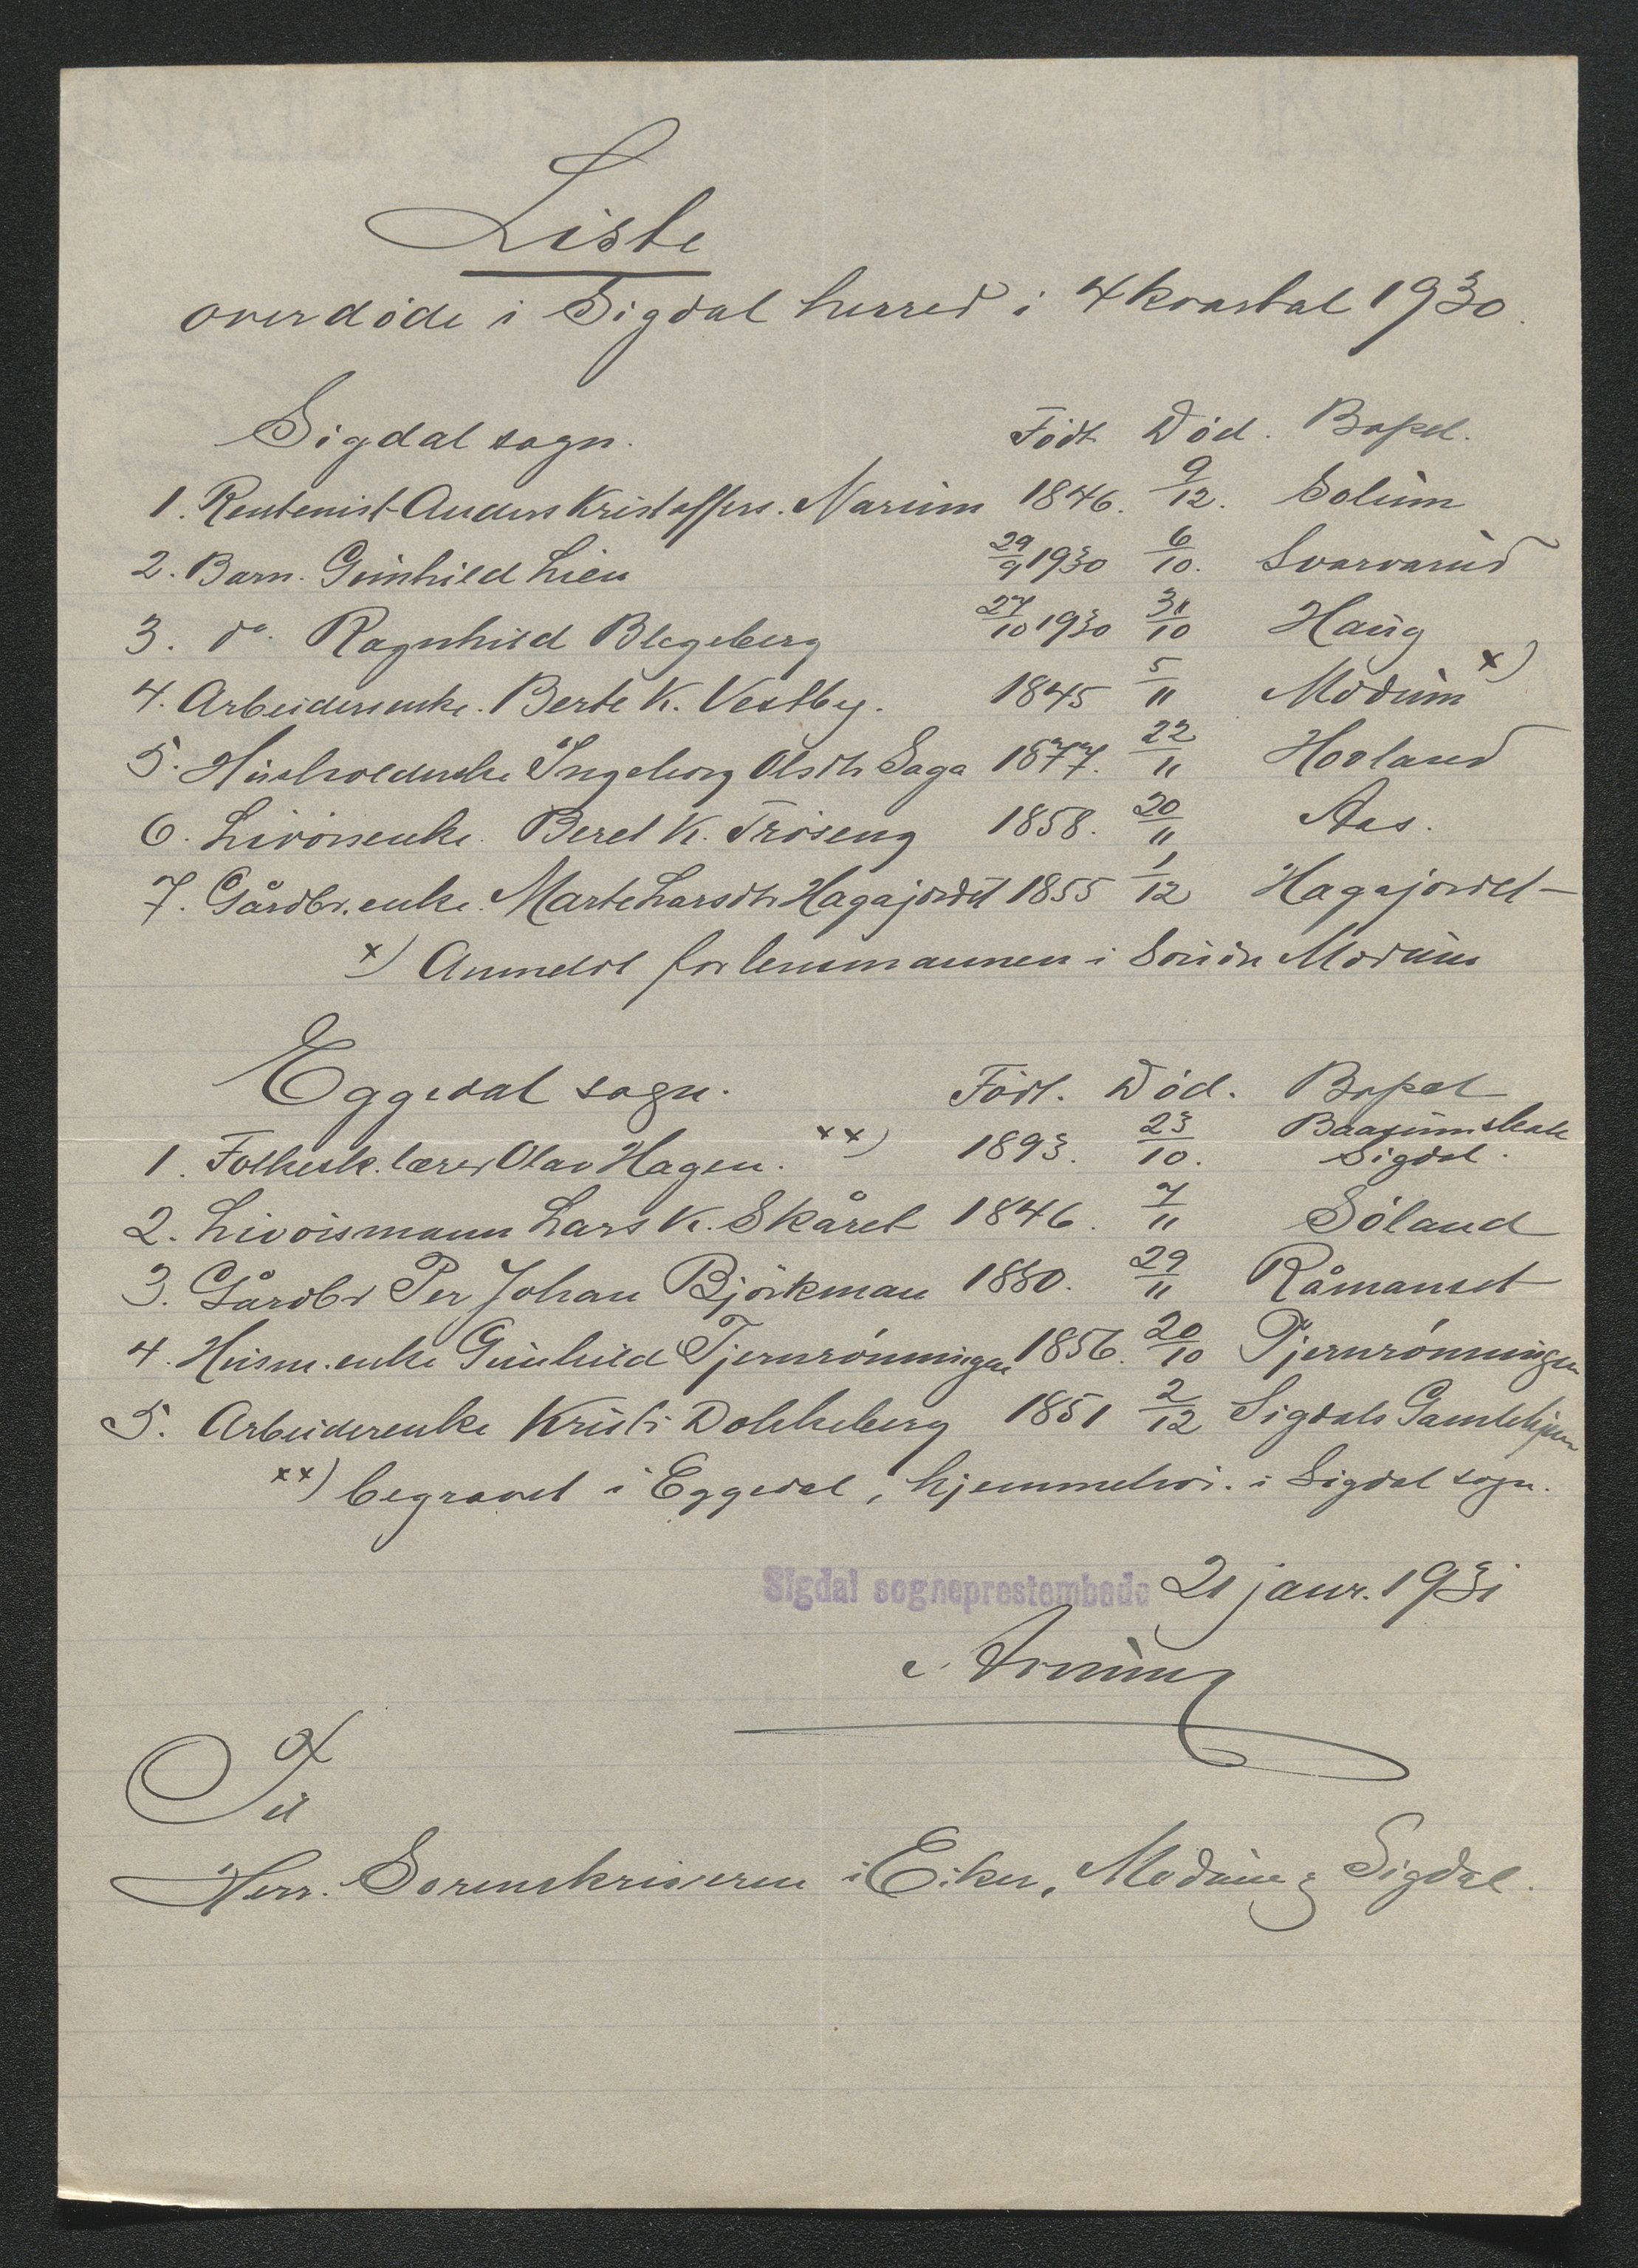 Liste
over døde i Sigdal herred i 4 kvartal 1930.
Sigdal sogn. Født Død. Bopel.
1. Rentenist Anders Kristoffers. Narum 1846. 9/12. Solum
2. Barn. Gunhild Lien 29/9 1930 6/10. Svarvarud
3. do. Ragnhild Blegeberg 27/10 1930 31/10 Haug
4. Arbeiderenke. Berte K. Vestby. 1845 5/11 Modum x)
5. Husholderske Ingeborg Olsdtr Saga 1877. 22/11 Hovland
6. Livørsenke. Beret K. Trøseng 1858. 20/11 Aas.
7. Gårdbr. enke. Marte Larsdtr Hagajordet 1855 1/12 Hagajordet
x) Anmeldt for lensmannen i Søndre Modum
Eggedal sogn. Født. Død. Bopel
1. Folkesk. lærer Olav Hagen. xx) 1893. 23/10. Baasumskale
Sigdal.
2. Livørsmann Lars K. Skåret 1846. 7/11 Søland
3. Gårdbr Per Johan Björkman 1880. 29/11 Råmanset
4. Husm. enke Gunhild Tjernrønningen 1856. 20/10 Tjernrønningen
5. Arbeiderenke Kristi Dokkeberg 1851 2/12 Sigdals Gamlehjem
xx) begravet i Eggedal, hjemmehør. i Sigdal sogn.
Sigdal sogneprestembede 21 janr. 1931
Til
Herr. Sorenskriveren i Eiker, Modum & Sigdal.